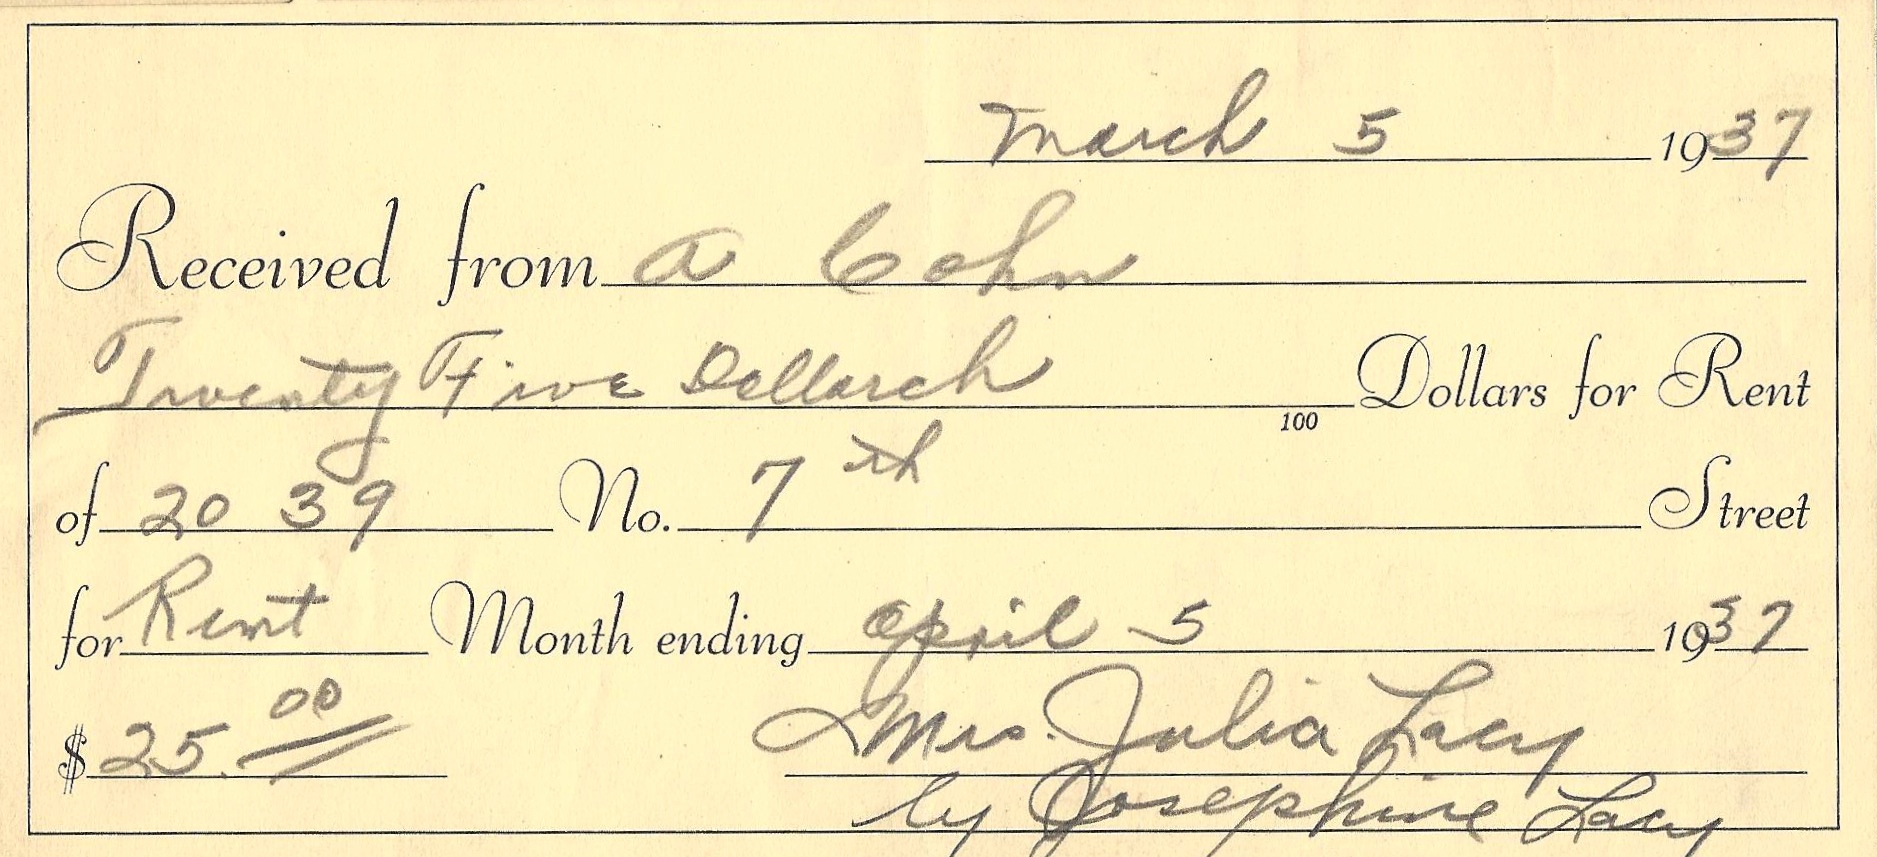 March 5 1937
Received from A Cohn
Twenty Five Dollarch 100 Dollars for Rent
of 20 39 No. 7th Street
for Rent Month ending April 5 1937
$ 25.00 Mrs. Julia Lacy
by Josephine Lacy